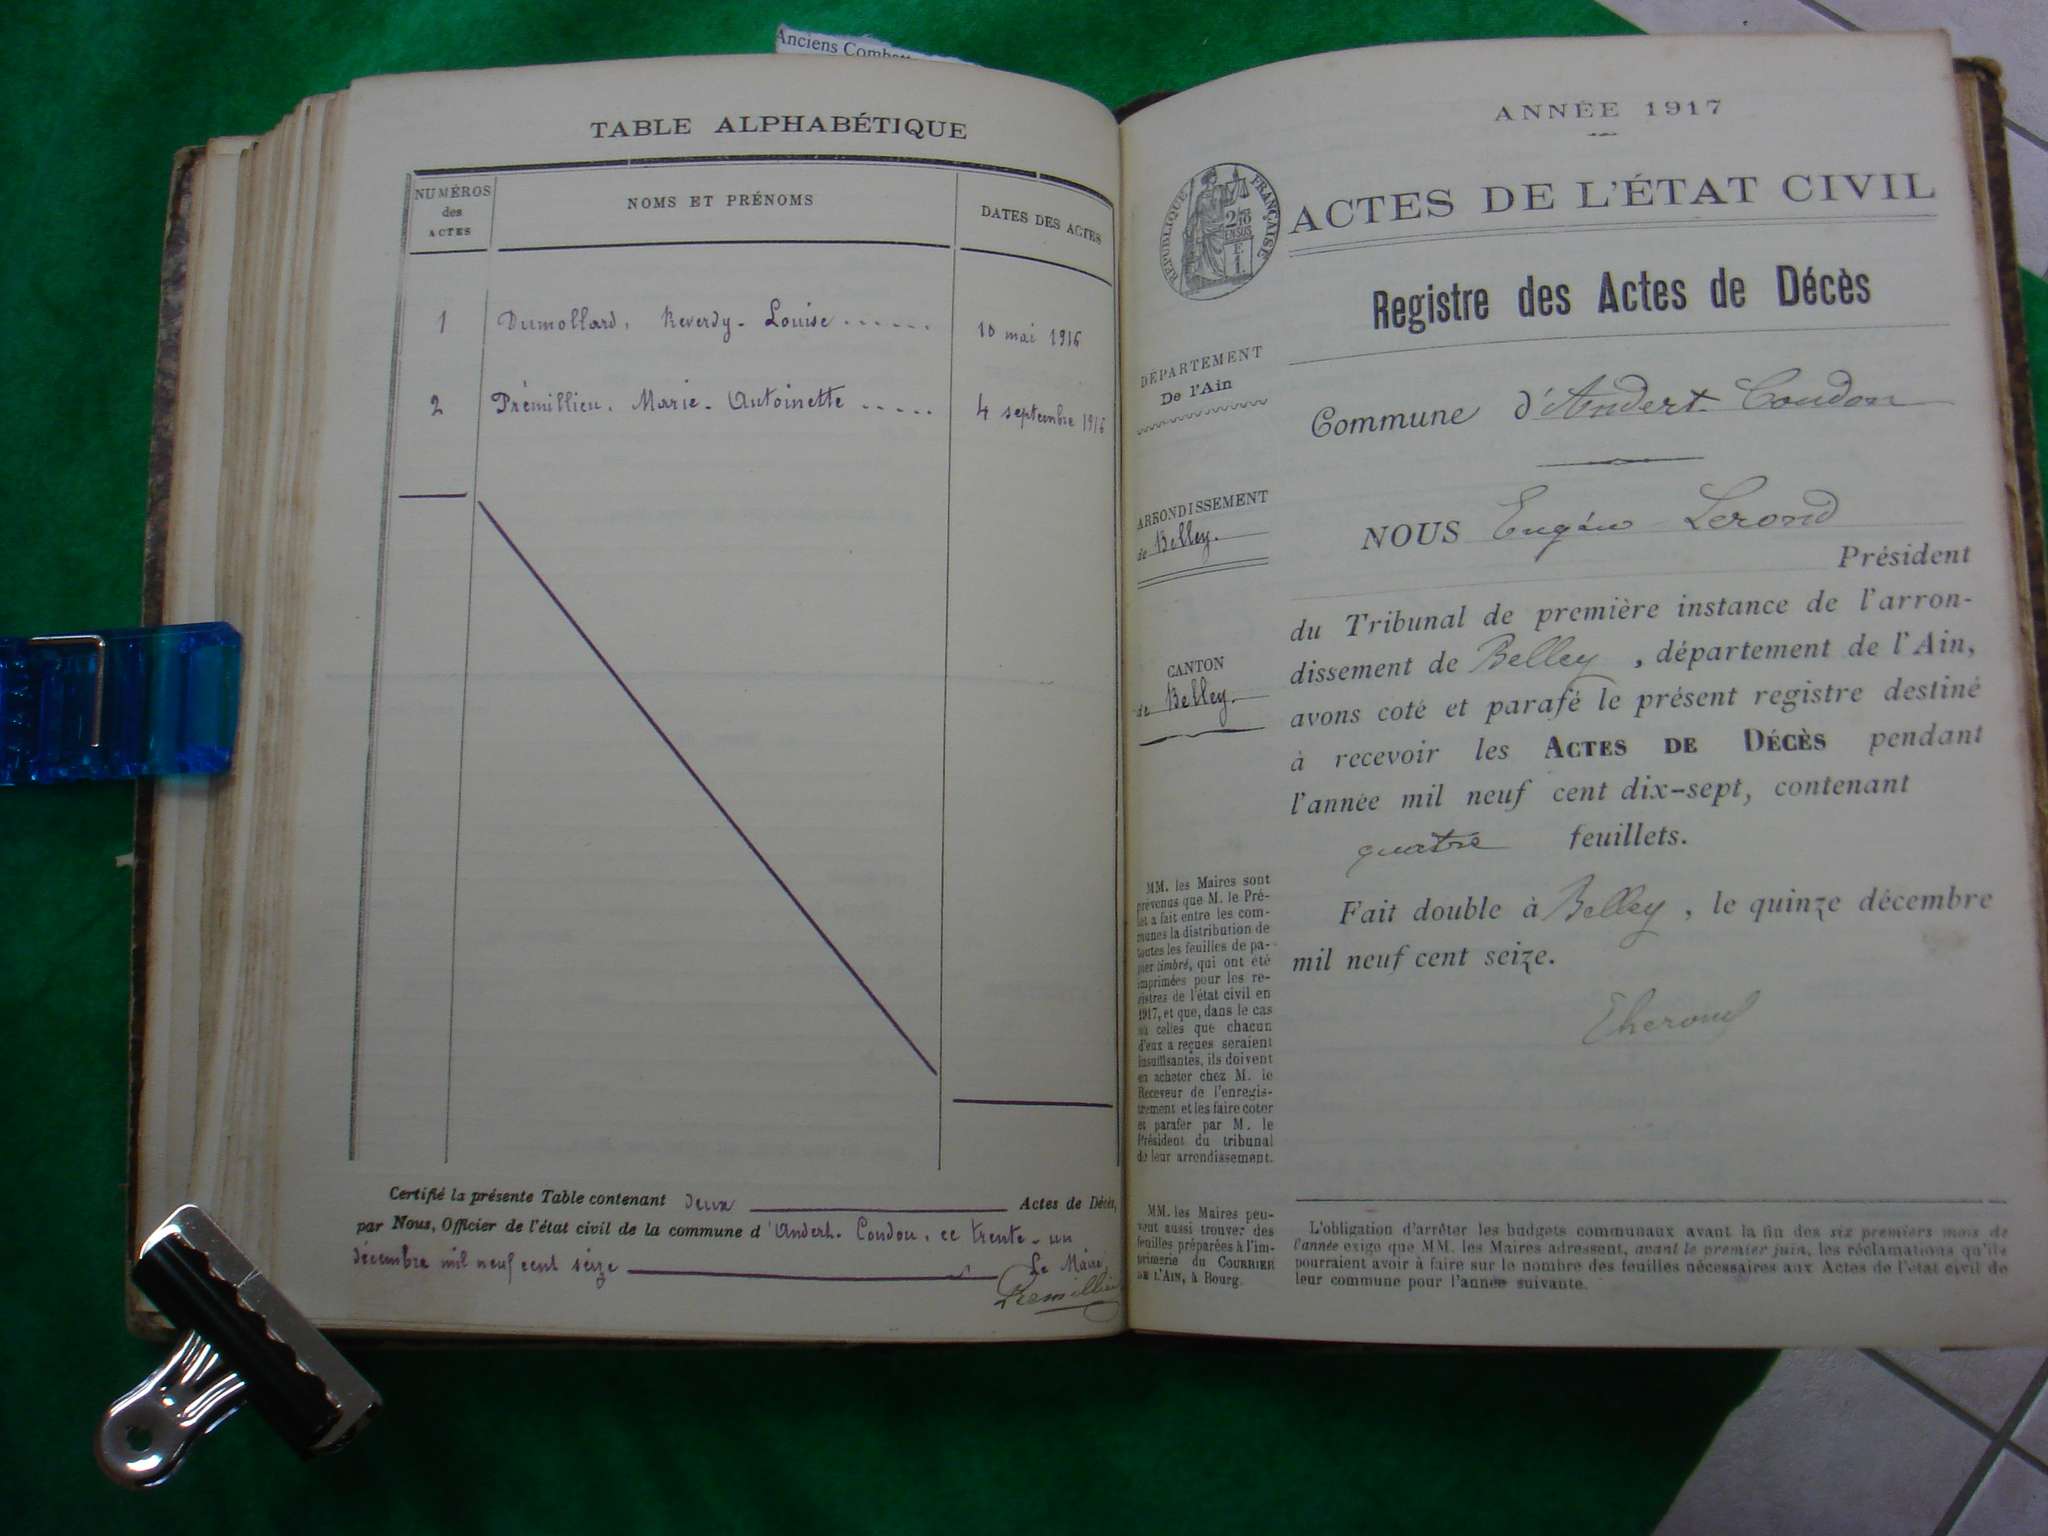 Anciens Comb
TABLE ALPHABÉTIQUE
NUMÉROS
des
ACTES
NOMS ET PRÉNOMS
DATES DES ACTES
1 Dumollard, Reverdy - Louise ...... 10 mai 1916
2 Prémillieu. Marie - Antoinette ..... 4 septembre 1916
Certifié la présente Table contenant deux Actes de Décès,
par Nous, Officier de l'état civil de la commune d'Andert-Condon, ce trente-un
décembre mil neuf cent seize Le Maire,
Premillieu
ANNÉE 1917
RÉPUBLIQUE FRANÇAISE
ACTES DE L'ÉTAT CIVIL
Registre des Actes de Décès
DÉPARTEMENT
De l'Ain
Commune d'Andert-Condon
ARRONDISSEMENT
de Belley.
CANTON
de Belley.
NOUS Eugène Lerond
Président
du Tribunal de première instance de l'arron-
dissement de Belley, département de l'Ain,
avons coté et parafé le présent registre destiné
à recevoir les ACTES DE DÉCÈS pendant
l'année mil neuf cent dix-sept, contenant
quatre feuillets.
Fait double à Belley, le quinze décembre
mil neuf cent seize.
MM. les Maires sont
prévenus que M. le Pré-
fet a fait entre les com-
munes la distribution de
toutes les feuilles de pa-
pier timbré, qui ont été
imprimées pour les re-
gistres de l'état civil en
1917, et que, dans le cas
où celles que chacun
d'eux a reçues seraient
insuffisantes, ils doivent
en acheter chez M. le
Receveur de l'enregis-
trement et les faire coter
et parafer par M. le
Président du tribunal
de leur arrondissement.
MM. les Maires peu-
vent aussi trouver des
feuilles préparées à l'im-
primerie du COURRIER
DE L'AIN, à Bourg.
L'obligation d'arrêter les budgets communaux avant la fin des six premiers mois de
l'année exige que MM. les Maires adressent, avant le premier juin, les réclamations qu'ils
pourraient avoir à faire sur le nombre des feuilles nécessaires aux Actes de l'état civil de
leur commune pour l'année suivante.